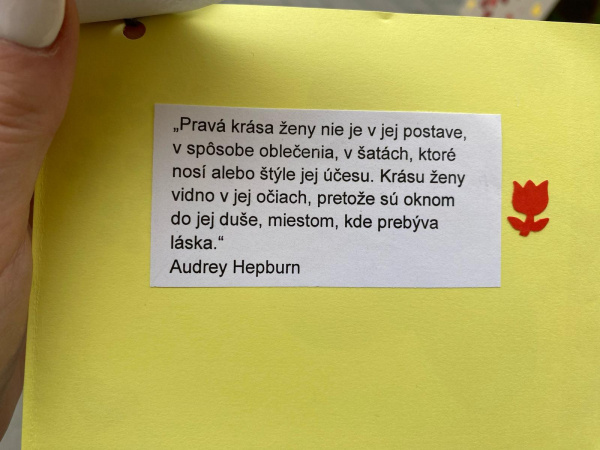 „Pravá krása ženy nie je v jej postave,
v spôsobe oblečenia, v šatách, ktoré
nosí alebo štýle jej účesu. Krásu ženy
vidno v jej očiach, pretože sú oknom
do jej duše, miestom, kde prebýva
láska.“
Audrey Hepburn